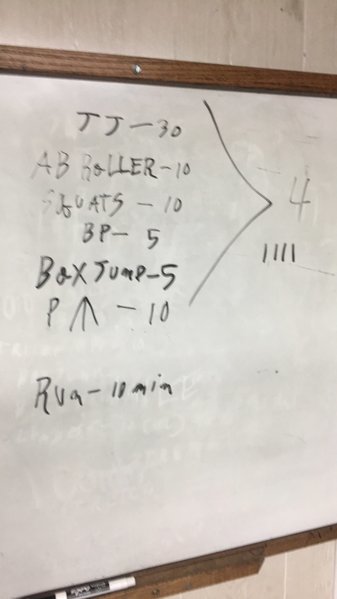 JJ - 30
AB ROLLER - 10
SQUATS - 10
BP - 5
BOX JUMP - 5
P ↑ - 10
4
||||
Run - 10 min